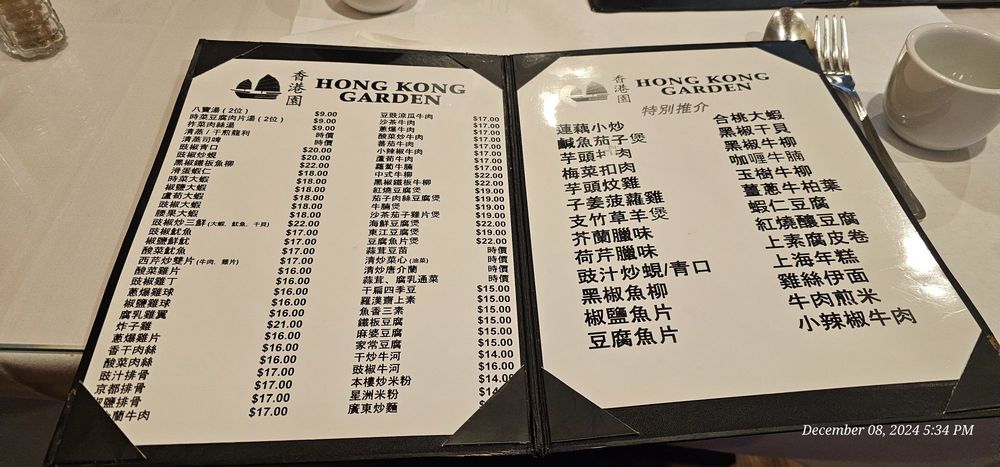 香港園
HONG KONG
GARDEN
八寶湯 (2位) $9.00
時菜豆腐肉片湯 (2位) $9.00
祚菜肉絲湯 $9.00
清蒸/干煎龍利 時價
清蒸司啤 時價
豉椒青口 $20.00
豉椒炒蜆 $20.00
黑椒鐵板魚柳 $18.00
滑蛋蝦仁 $18.00
時菜大蝦 $18.00
椒鹽大蝦 $18.00
蘆荀大蝦 $18.00
豉椒大蝦 $18.00
腰果大蝦 $18.00
豉椒炒三鮮 (大蝦, 魷魚, 干貝) $22.00
豉椒魷魚 $17.00
椒鹽鮮魷 $17.00
酸菜魷魚 $17.00
西芹炒雙片 (牛肉, 雞片) $17.00
酸菜雞片 $16.00
豉椒雞丁 $16.00
蔥爆雞球 $16.00
椒鹽雞球 $16.00
腐乳雞翼 $16.00
炸子雞 $21.00
蔥爆雞片 $16.00
香干肉絲 $16.00
酸菜肉絲 $16.00
豉汁排骨 $17.00
京都排骨 $17.00
鹽排骨 $17.00
蘭牛肉 $17.00
豆豉涼瓜牛肉 $17.00
沙茶牛肉 $17.00
蔥爆牛肉 $17.00
酸菜炒牛肉 $17.00
蕃茄牛肉 $17.00
小辣椒牛肉 $17.00
蘆荀牛肉 $17.00
蘿蔔牛腩 $17.00
中式牛柳 $22.00
黑椒鐵板牛柳 $22.00
紅燒豆腐煲 $19.00
茄子肉絲豆腐煲 $19.00
牛腩煲 $19.00
沙茶茄子雞片煲 $19.00
海鮮豆腐煲 $22.00
東江豆腐煲 $19.00
豆腐魚片煲 $22.00
蒜茸豆苗 時價
清炒菜心 (油菜) 時價
清炒唐介蘭 時價
蒜茸、腐乳通菜 時價
干扁四季豆 $15.00
羅漢齋上素 $15.00
魚香三素 $15.00
鐵板豆腐 $15.00
麻婆豆腐 $15.00
家常豆腐 $15.00
干炒牛河 $14.00
豉椒牛河 $16.00
本樓炒米粉 $14.00
星洲米粉
廣東炒麵
香港園
HONG KONG
GARDEN
特別推介
蓮藕小炒
鹹魚茄子煲
芋頭 肉
梅菜扣肉
芋頭炆雞
子姜菠蘿雞
支竹草羊煲
芥蘭臘味
荷芹臘味
豉汁炒蜆/青口
黑椒魚柳
椒鹽魚片
豆腐魚片
合桃大蝦
黑椒干貝
黑椒牛柳
咖喱牛腩
玉樹牛柳
薑蔥牛柏葉
蝦仁豆腐
紅燒釀豆腐
上素腐皮卷
上海年糕
雞絲伊面
牛肉煎米
小辣椒牛肉
December 08, 2024 5:34 PM